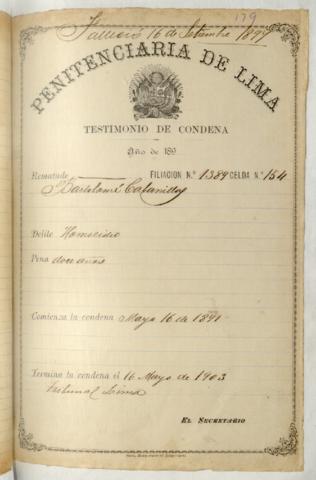 Falleció 16 de Setiembre 1897
179
PENITENCIARIA DE LIMA
TESTIMONIO DE CONDENA
Año de 189
Rematado FILIACION N.º 1389 CELDA N.º 154
Bartolomé Cabanillas
Delito Homicidio
Pena doce años
Comienza la condena Mayo 16 de 1891
Termina la condena el 16 Mayo de 1903
tribunal Lima
EL SECRETARIO